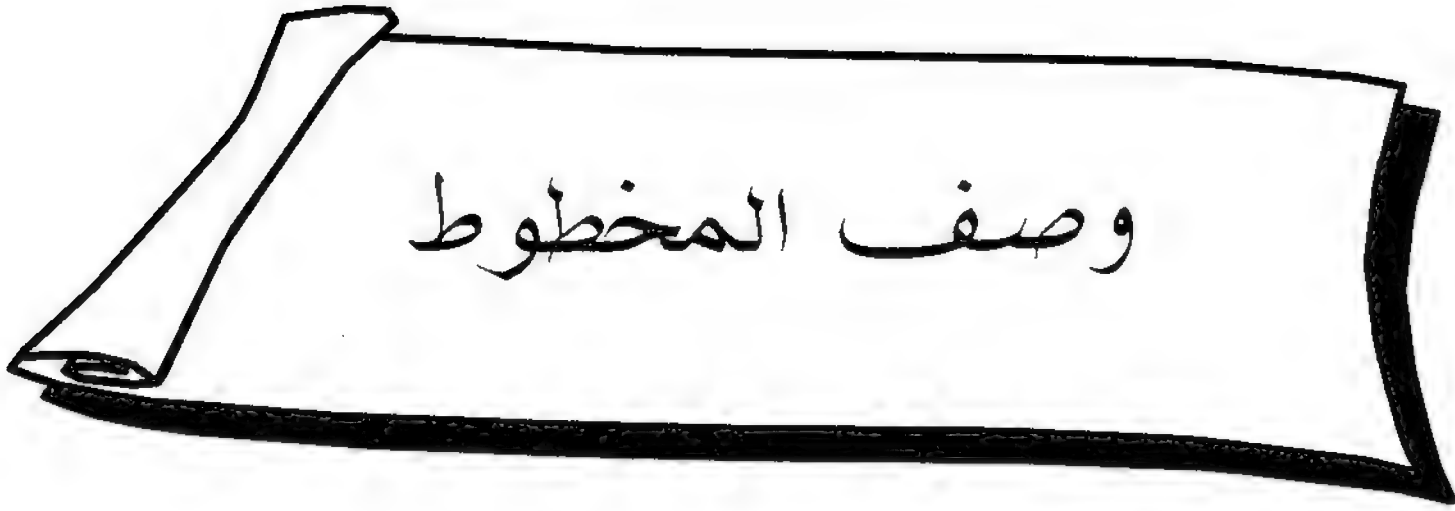 وصف المخطوط